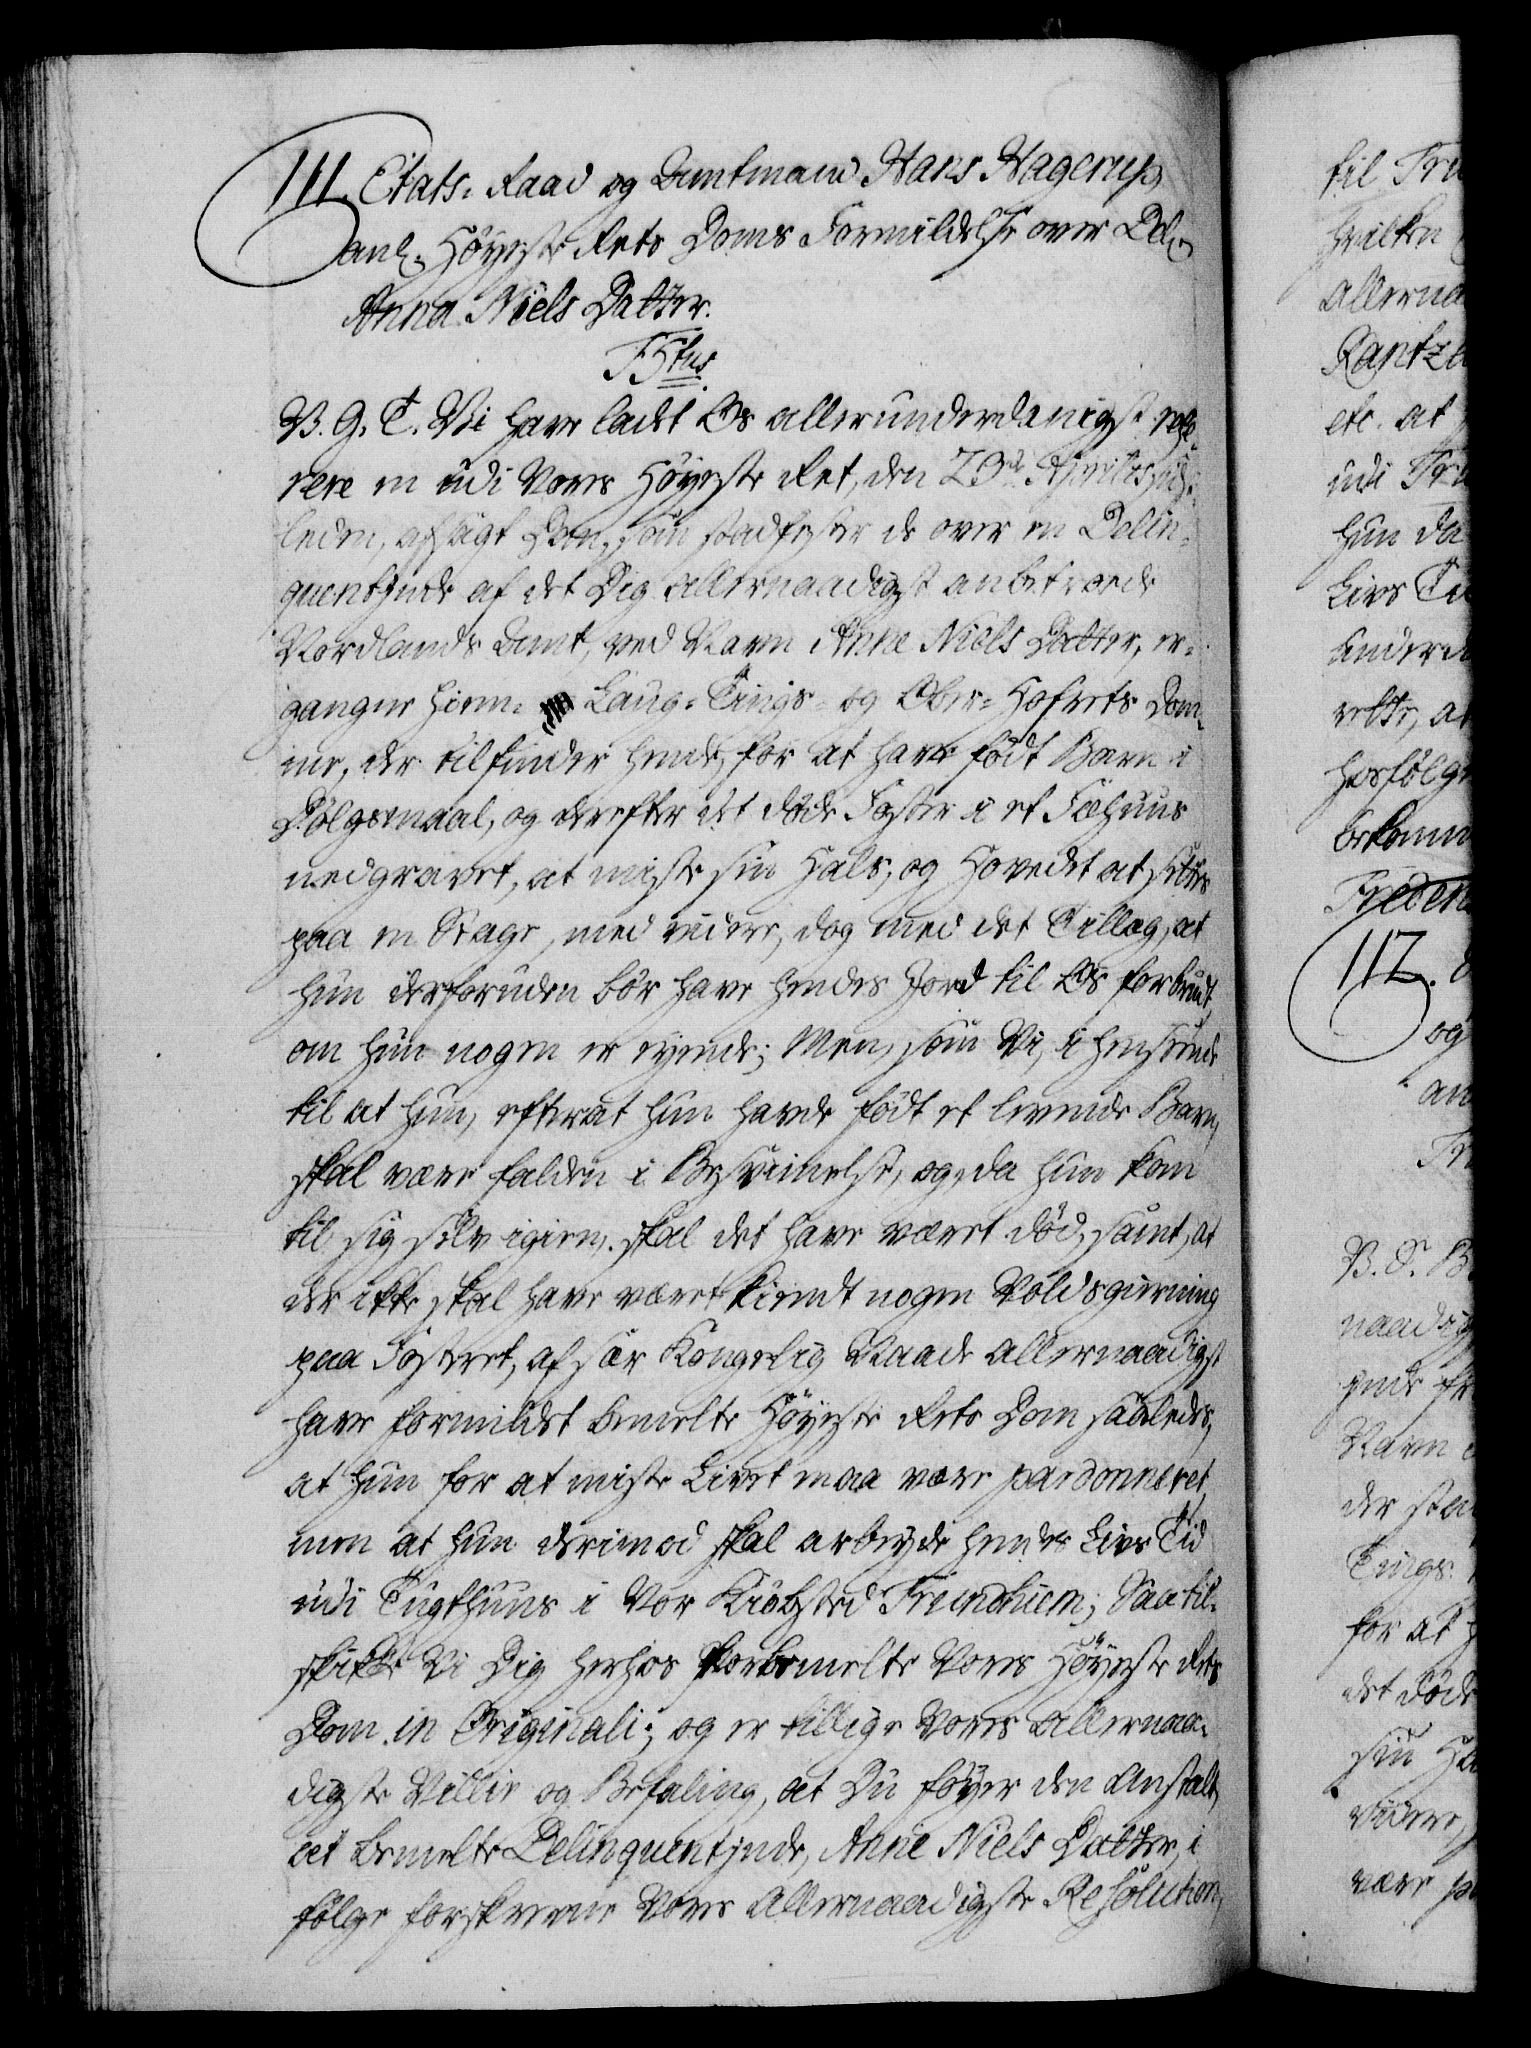 111. Etats-Raad og Amtmand Hans Hagerup
anl. Høyeste Rets Doms Formildelse over Del:
Anna Niels Datter.
F5tus
V. G. T. Vi have ladet Os allerunderdanigst refe-
rere en udi Vores Høyeste Ret, den 23de Aprilis sidst-
leden, afsagt Dom, som stadfester de over en Delin-
quentinde af det Dig allernaadigst anbetroede
Nordlands Amt, ved Navn Anne Niels Datter, er-
gangne Hiem- Laug-Tings- og Ober-Hofrets Dom-
me, der tilfinder hende, for at have födt Barn i
Dölgsmaal, og derefter det döde Foster i et Fæhuus
nedgravet, at miste sin Hals, og Hovedet at settes
paa en Stage, med videre, dog med det Tillæg, at
hun derforuden bör have hendes Jord til Os forbrudt,
om hun nogen er eyende; Men, som Vi, i henseende
til at hun, efterat hun havde födt et levende Barn,
skal være falden i Besvimelse, og, da hun kom
til sig selv igien, skal det have været död, samt, at
der ikke skal have været kiendt nogen Voldsgierning
paa Fosteret, af sær Kongelig Naade allernaadigst
have formildet bemelte Höyeste Rets Dom saaledes,
at hun for at miste Livet maa være pardonneret,
men at hun derimod skal arbeyde hendes Livs Tid
udi Tugthuus i Vor Kiöbsted Trundhiem; Saa til-
skikke Vi Dig herhos forbemelte Vores Höyeste Rets
Dom in Originali; og er tillige Vores allernaa-
digste Villie og Befaling, at Du föyer den Anstalt,
at bemelte Delinquentinde, Anne Niels Datter, i
fölge forskrevne Vores allernaadigste Resolution,
til Tru
hvilken
allerna
Rantza
etc. at
udi Tru
hun da
Livs Ti
under
rette, at
hosfölge
bekomm
Freder
112.
og
an
V. G.
naadig
Navn
der sta
Tings-
for at
det döde
sin Ha
videre,
være pa